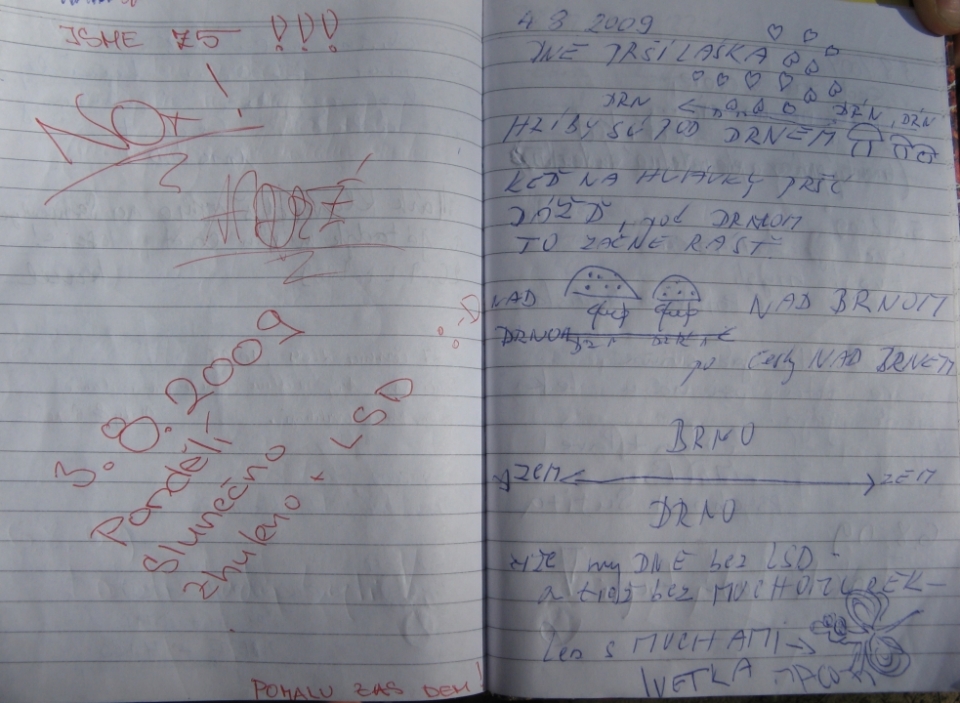 JSME ZS !!!
NO!
3.8.2009
Pondělí
Slunečno
zhuleno + LSD
:-D
POMALU ZAS DEM!
4 8 2009
DNE PRŠÍ LÁSKA
DRN DRN, DRN
HŘÍBY SÚ POD DRNEM
KEĎ NA HLAVKY PRŠÍ
DÁŽĎ, pod DRNOM
TO ZAČNE RÁSŤ.
NAD NAD BRNOM
DRNOM
po česky NAD BRNEM
BRNO
ZEM ZEM
DRNO
my DNE bez LSD -
a tiež bez MUCHOMUREK -
len s MUCHAMI →
IVETKA